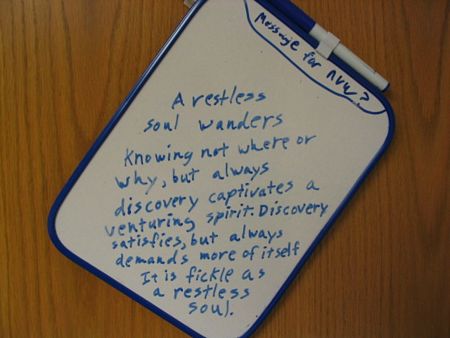 Message for nvw?
A restless
soul wanders
Knowing not where or
why, but always
discovery captivates a
venturing spirit. Discovery
satisfies, but always
demands more of itself
It is fickle as
a restless
soul.